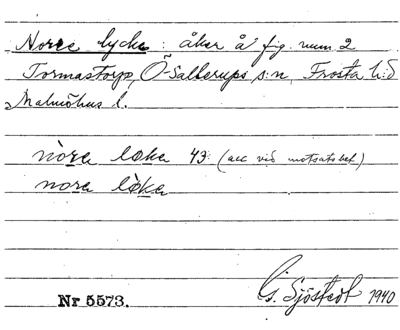 Norre lycke : åker å fig. num. 2
Tormastorp, Ö-Sallerups s:n, Frosta h:d
Malmöhus l.
nòra loka 43: (acc vid motsatsbet)
nora lòka
G. Sjöstedt 1940
Nr 5573.